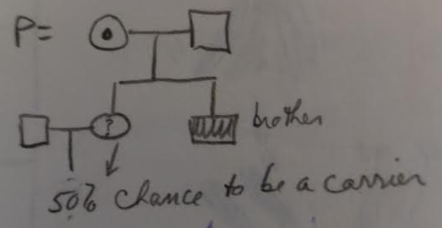 P=
?
brother
50% chance to be a carrier